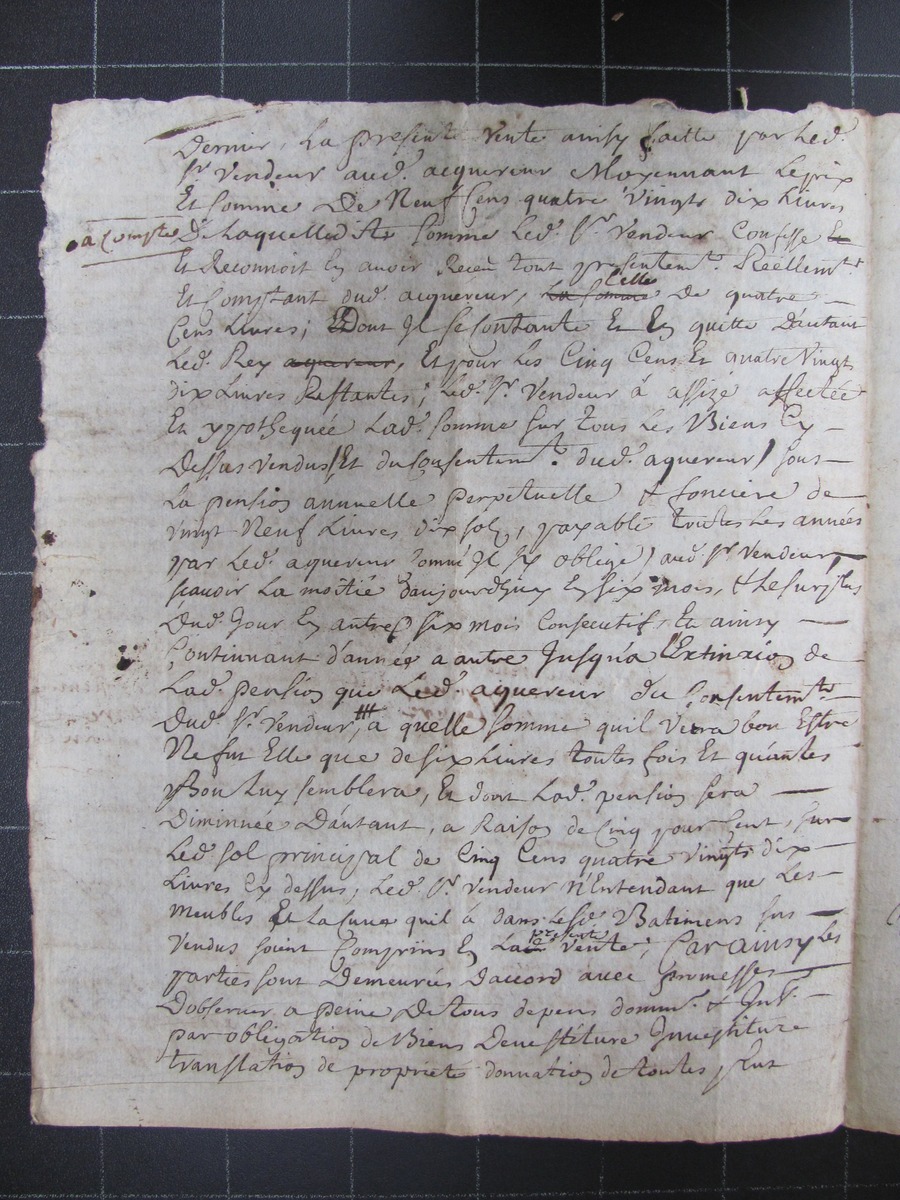 Dernier, La presente vente ainsy faitte par Led.
Sr. Vendeur aud. acquereur Moyennant Le prix
Et somme De Neuf Cens quatre vingts dix Livres
a Compte
De Laquelled. somme Led. Sr. Vendeur Confesse Et
Et Reconnoit En avoir Receu tout presentemt. Réellemt.
Et Comptant dud. acquereur, La somme Celle De quatre —
Cens Livres; Dont Il se contante Et En quitte D'autant
Led. Rey aquereur, Et pour Les Cinq Cens Et quatre Vingt
dix Livres Restantes; Led. Sr. Vendeur à assizé affectée
Et ypothequée Lad. somme sur tous Les Biens Cy —
Dessus vendus (Et du Consentemt. dud. aquereur) sous —
La pension annuelle perpetuelle & fonciere de
vingt Neuf Livres dix sol, payable toutes Les années
par Led. aquereur comme Il sy oblige, aud. Sr. Vendeur,
scavoir La moitié d'aujourdhuy En six mois, & Le surplus
Dud. Jour En autres six mois Consecutifs, Et ainsy —
Continnuant d'année a autre Jusqu'a L'Extinxion de
Lad. pension que Led. aquereur du Consentemt.
Dud. Sr. Vendeur, a quelle somme quil Verra bon Estre
Ne fut Elle que de six Livres toutes fois Et quantes
Bon Luy semblera, Et dont Lad. pension sera —
Diminnuée D'autant, a Raison de Cinq pour Cent, sur
Led. sol principal de Cinq Cens quatre vingts dix —
Livres Cy dessus; Led. Sr. Vendeur N'Entendant que Les —
Meubles Et La Cuve quil à dans Lesd. Batimens sus —
Vendus soient Comprins En La presente Vente; Car ainsy Les
parties sont Demeurés D'accord avec promesses —
D'observer a peine De tous depens domm. & Int. —
par obligation de Biens Devestiture Investiture
translation de propriété donnation de toutes plus